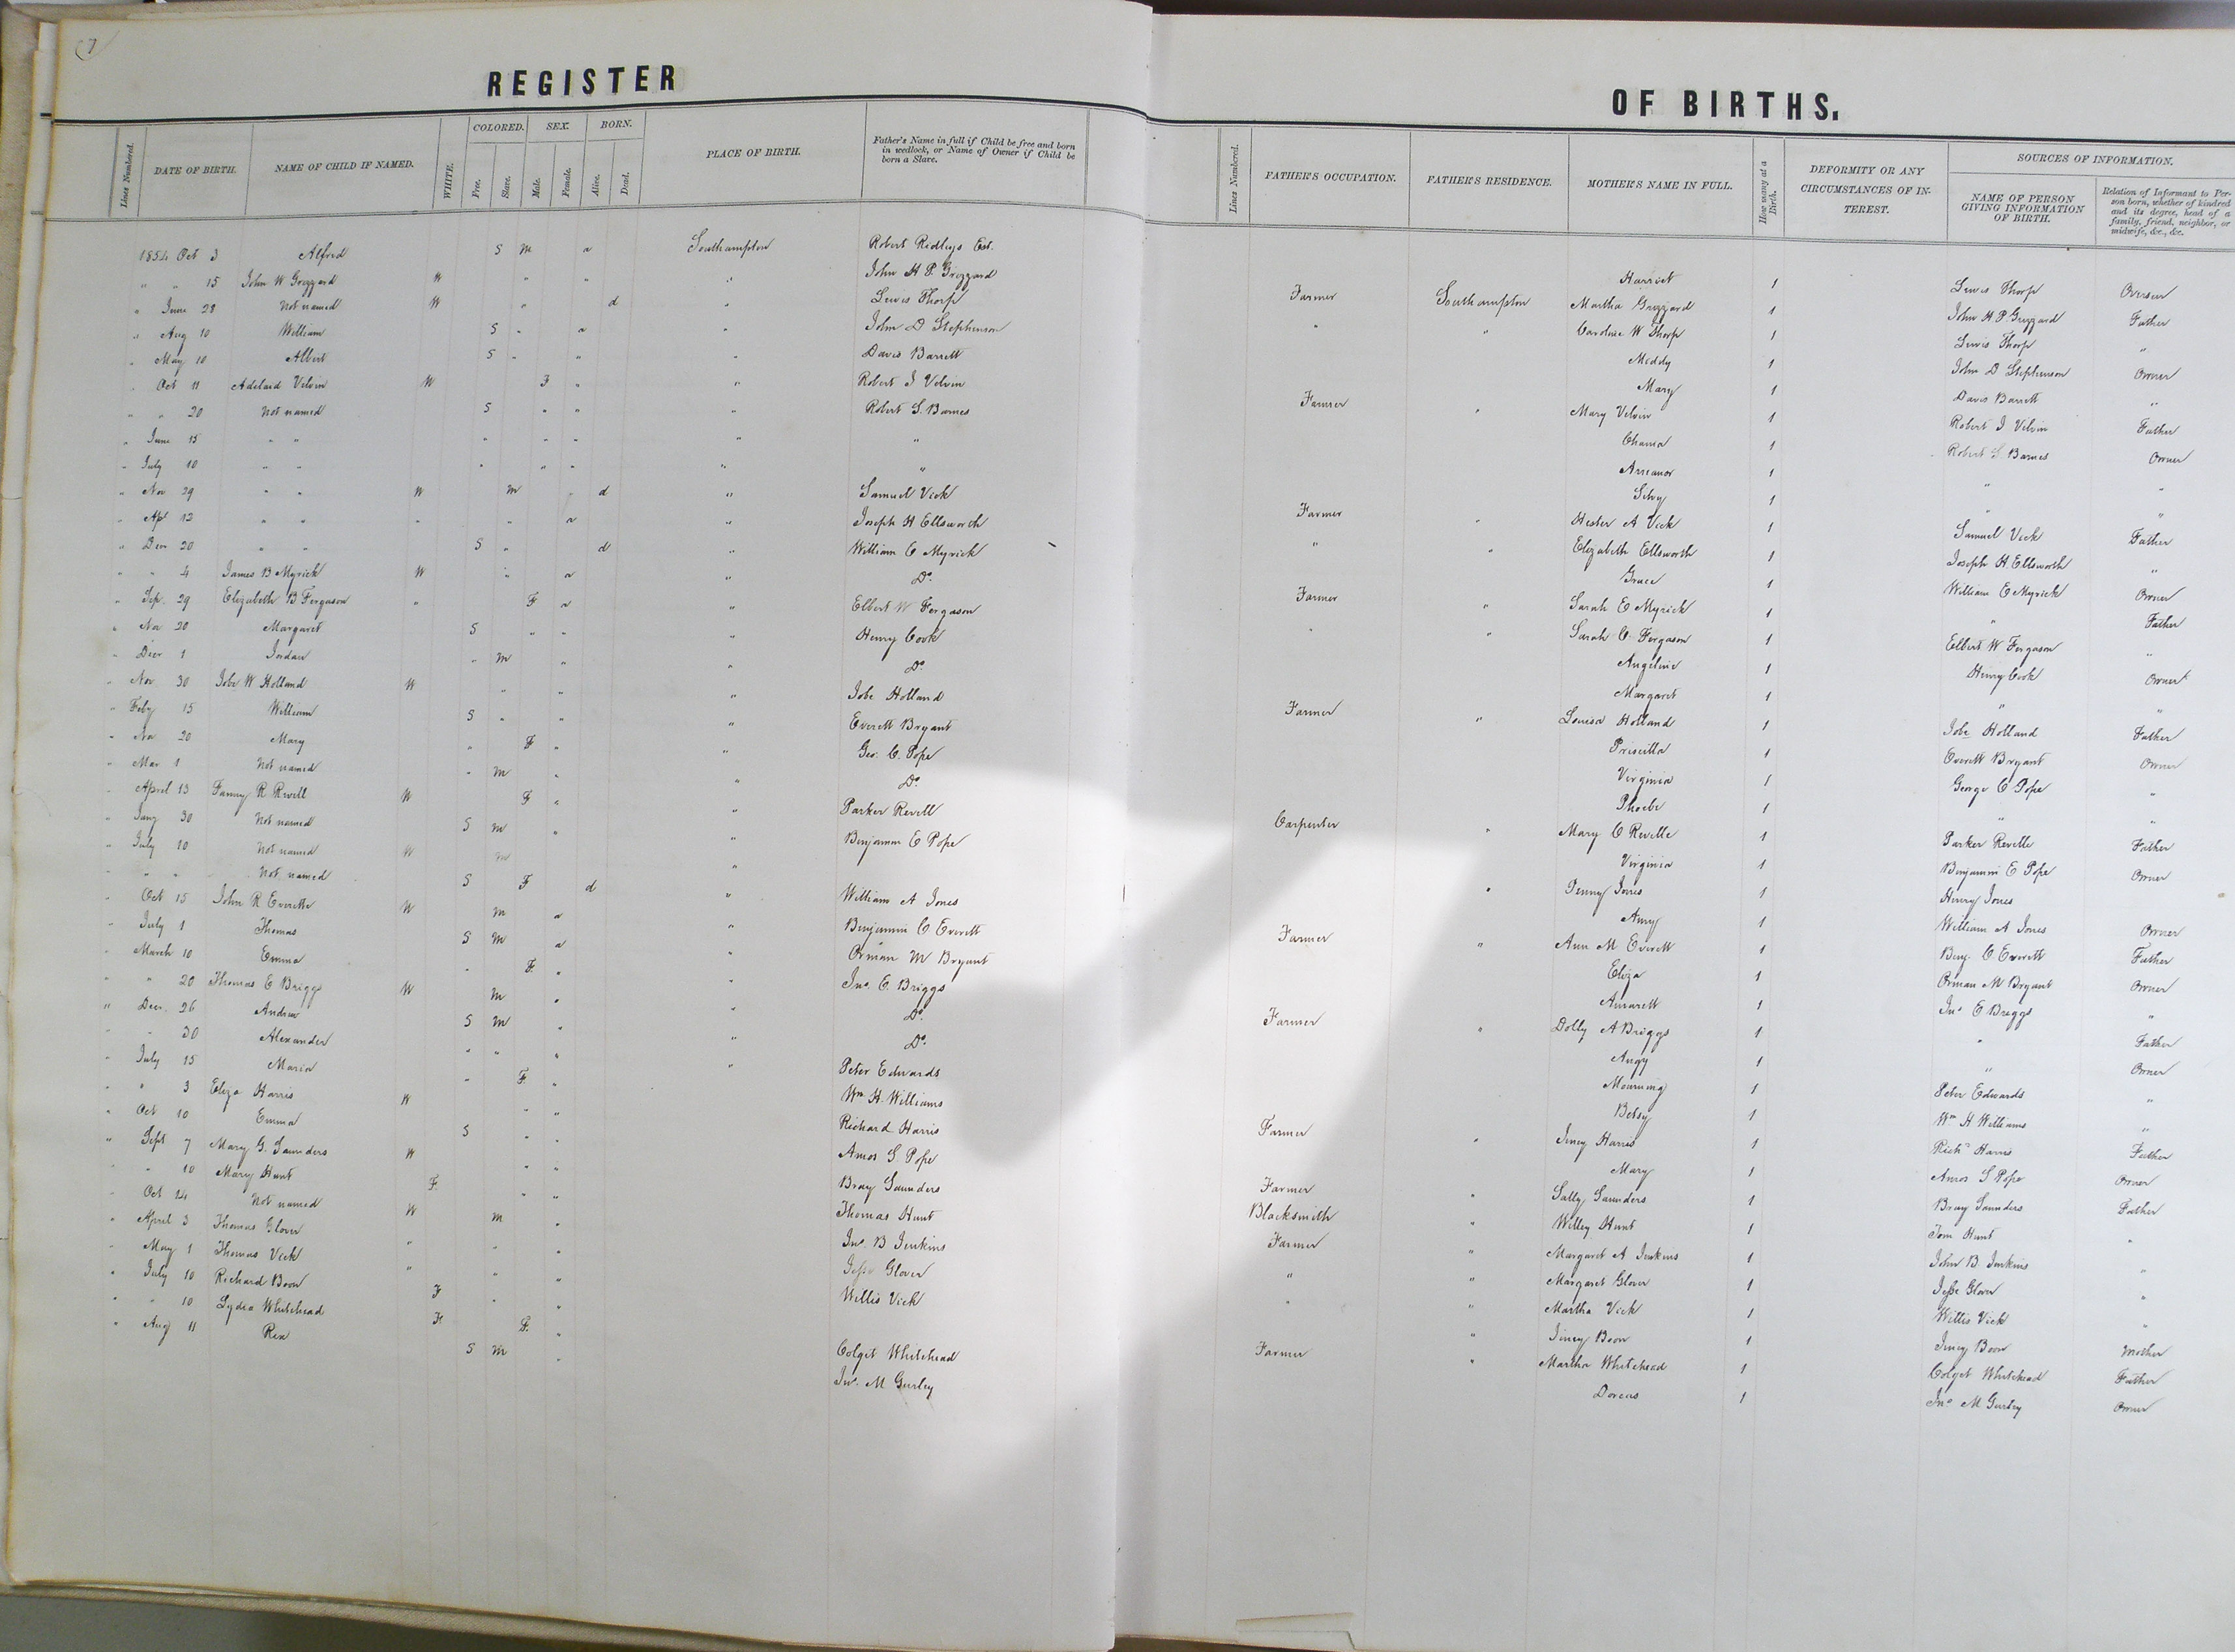 (7)
REGISTER OF BIRTHS.
Lines Numbered. DATE OF BIRTH. NAME OF CHILD IF NAMED. WHITE. COLORED. Free. Slave. SEX. Male. Female. BORN. Alive. Dead. PLACE OF BIRTH. Father's Name in full if Child be free and born in wedlock, or Name of Owner if Child be born a Slave. Lines Numbered. FATHER'S OCCUPATION. FATHER'S RESIDENCE. MOTHER'S NAME IN FULL. How many at a Birth. DEFORMITY OR ANY CIRCUMSTANCES OF INTEREST. SOURCES OF INFORMATION. NAME OF PERSON GIVING INFORMATION OF BIRTH. Relation of Informant to Person born, whether of kindred and its degree, head of a family, friend, neighbor, or midwife, &c., &c.
1854 Oct 3 Alfred S M a Southampton Robert Ridleys Est. Harriet 1 Lewis Thorp Overseer
" " 15 John W Grizzard W " " " John H P Grizzard Farmer Southampton Martha Grizzard 1 John H P Grizzard Father
" June 28 Not named W " d " Lewis Thorp " " Caroline W Thorp 1 Lewis Thorp "
" Aug 10 William S " a " John D Stephenson Middy 1 John D Stephenson Owner
" May 10 Albert S " " " Davis Barrett Mary 1 Davis Barrett "
" Oct 11 Adelaid Velvin W F " " Robert J Velvin Farmer " Mary Velvin 1 Robert J Velvin Father
" " 20 Not named S " " " Robert S. Barnes 1 Robert S Barnes Owner
" June 15 " " " " " " " 1 " "
" July 10 " " " " " " " Silvy 1 " "
" Nov 29 " " W M d " Samuel Vick Farmer " Hester A Vick 1 Samuel Vick Father
" Apl 12 " " " " a " Joseph H Ellsworth " " Elizabeth Ellsworth 1 Joseph H. Ellsworth "
" Decr 20 " " S " d " William C Myrick Grace 1 William C Myrick Owner
" " 4 James B Myrick W " a " Do. Farmer " Sarah E Myrick 1 " Father
" Sep. 29 Elizabeth B Fergason " F a " Elbert W Fergason " " Sarah C. Fergason 1 Elbert W Fergason "
" No 20 Margaret S " " " Henry Cook Angeline 1 Henry Cook Owner
" Decr 1 Jordan " M " " Do. Margaret 1 " "
" Nov 30 Jobe W Holland W " " " Jobe Holland Farmer " Louisa Holland 1 Jobe Holland Father
" Feby 15 William S " " " Everett Bryant Priscilla 1 Everett Bryant Owner
" No 20 Mary " F " " Geo. C. Pope Virginia 1 George C Pope "
" Mar 1 Not named " M " " Do. Phoebe 1 " "
" April 13 Fanny R Revell W F " " Parker Revell Carpenter " Mary C Revelle 1 Parker Revelle Father
" Jany 30 Not named S M " " Benjamin E Pope Virginia 1 Benjamin E Pope Owner
" July 10 Not named W M " " Jones 1 Henry Jones
" " " Not named S F d " William A Jones Amy 1 William A Jones Owner
" Oct 15 John R Everette W M a " Benjamin C Everett Farmer " Ann M Everett 1 Benj. C. Everett Father
" July 1 Thomas S M a " Orman M Bryant Eliza 1 Orman M Bryant Owner
" March 10 Emma " F. " " Jno. E. Briggs 1 Jno E Briggs "
" " 20 Thomas E Briggs W M " " Do. Farmer " Dolly A Briggs 1 " Father
" Decr. 26 Andrew S M " " Do. Angy 1 " Owner
" " 30 Alexander " " " " Peter Edwards Mourning 1 Peter Edwards "
" July 15 Maria " F. " Wm H. Williams Betsy 1 Wm H Williams "
" " 3 Eliza Harris W " " Richard Harris Farmer " Jincy Harris 1 Richd Harris Father
" Oct 10 Emma S " " Amos S. Pope Mary 1 Amos S Pope Owner
" Sept 7 Mary G. Saunders W " " Bray Saunders Farmer " Sally Saunders 1 Bray Saunders Father
" " 10 Mary Hunt F. " " Thomas Hunt Blacksmith " Willey Hunt 1 Tom Hunt "
" Oct 14 Not named W M " Jno. B Jenkins Farmer " Margaret A Jenkins 1 John B. Jenkins "
" April 3 Thomas Glover " " " Jesse Glover " " Margaret Glover 1 Jesse Glover "
" May 1 Thomas Vick " " " Willis Vick " " Martha Vick 1 Willis Vick "
" July 10 Richard Boon F " " " Jincy Boon 1 Jincy Boon Mother
" " 10 Lydia Whitehead F. F. " Colget Whitehead Farmer " Martha Whitehead 1 Colget Whitehead Father
" Aug 11 Rix S M " Jno. M Gurley Dorcas 1 Jno. M Gurley Owner